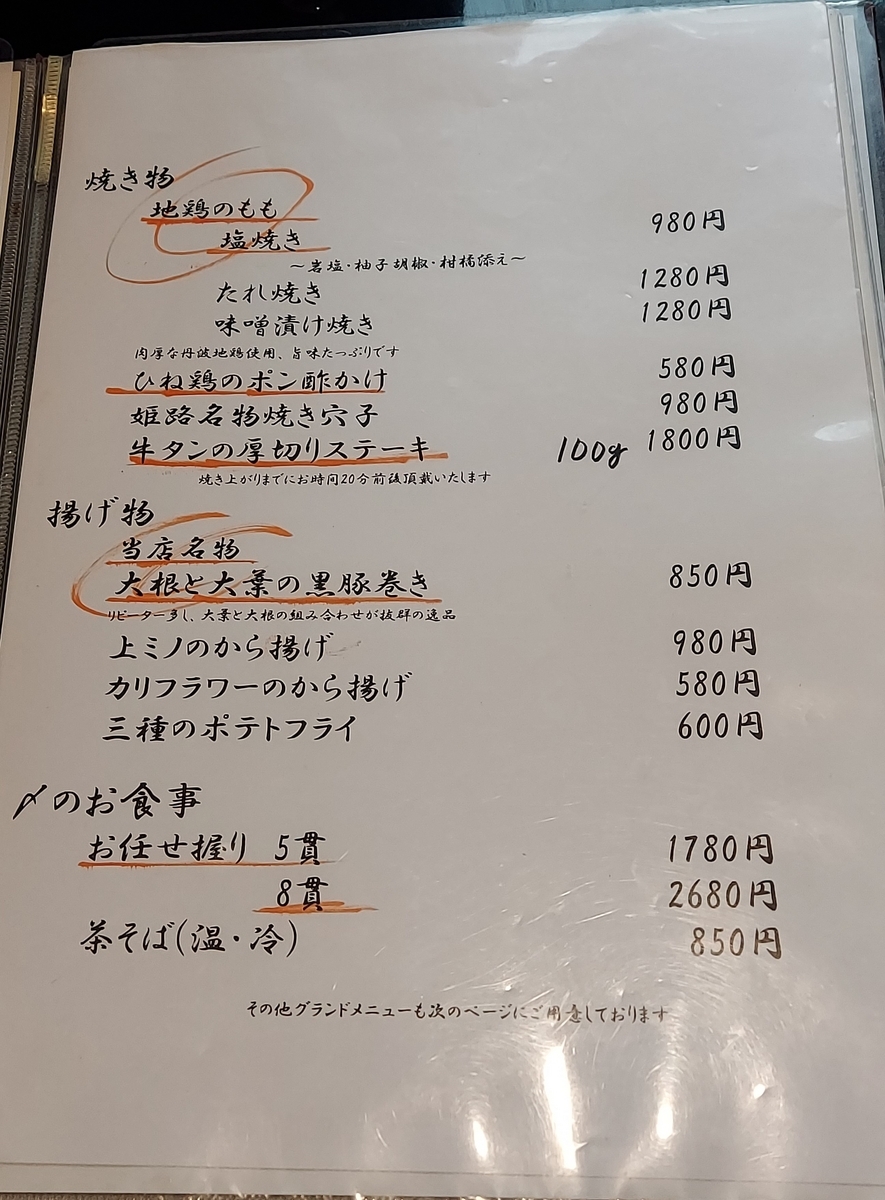 焼き物
地鶏のもも
塩焼き 980円
～岩塩・柚子胡椒・柑橘添え～
たれ焼き 1280円
味噌漬け焼き 1280円
肉厚な丹波地鶏使用、旨味たっぷりです
ひね鶏のポン酢かけ 580円
姫路名物焼き穴子 980円
牛タンの厚切りステーキ 100g 1800円
焼き上がりまでにお時間20分前後頂戴いたします
揚げ物
当店名物
大根と大葉の黒豚巻き 850円
リピーター多し、大葉と大根の組み合わせが抜群の逸品
上ミノのから揚げ 980円
カリフラワーのから揚げ 580円
三種のポテトフライ 600円
〆のお食事
お任せ握り 5貫 1780円
8貫 2680円
茶そば(温・冷) 850円
その他グランドメニューも次のページにご用意しております